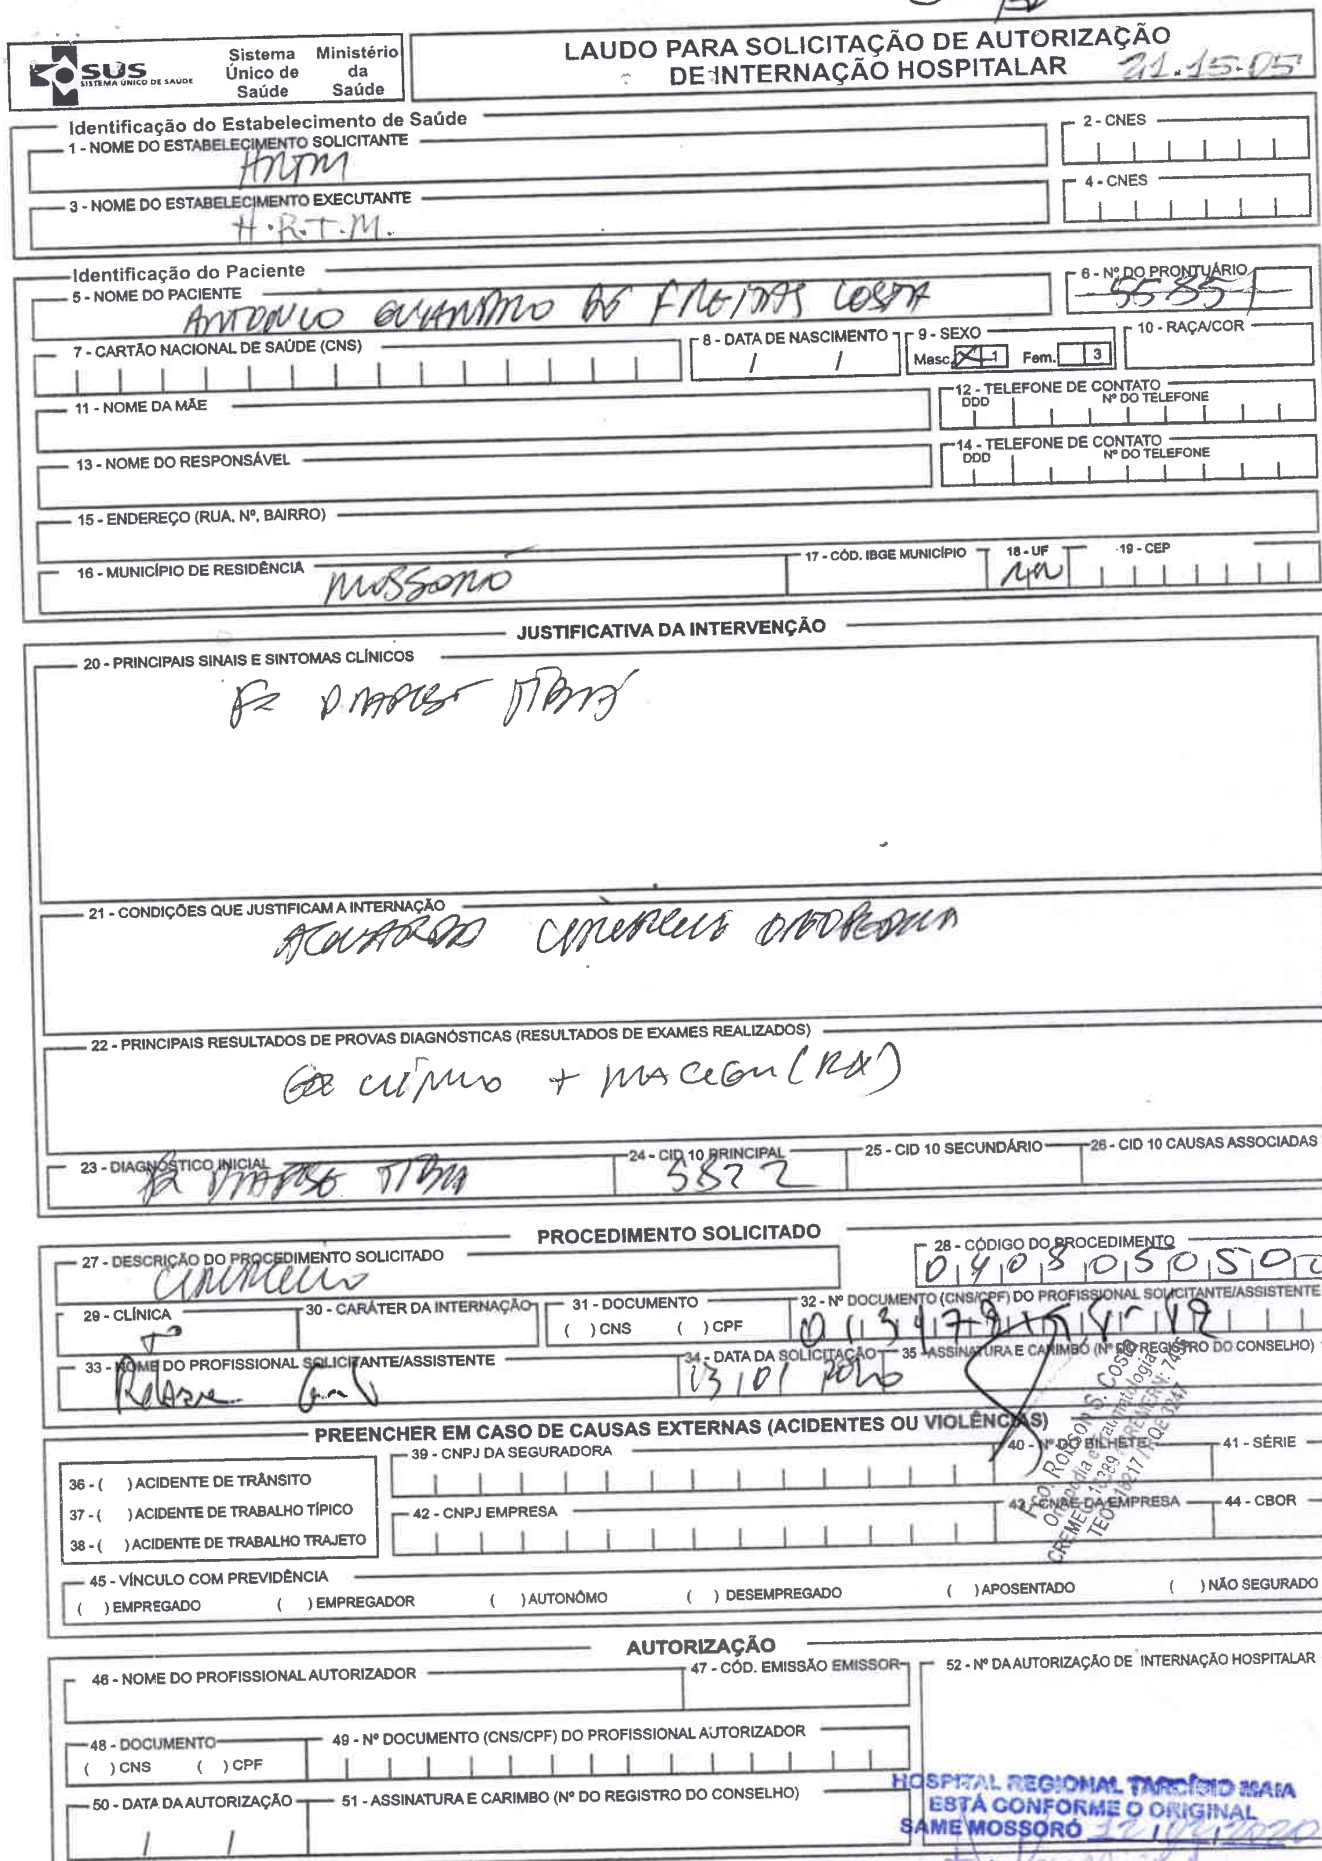 SUS
SISTEMA ÚNICO DE SAÚDE
Sistema Único de Saúde
Ministério da Saúde
LAUDO PARA SOLICITAÇÃO DE AUTORIZAÇÃO
DE INTERNAÇÃO HOSPITALAR
21.15.05
Identificação do Estabelecimento de Saúde
1 - NOME DO ESTABELECIMENTO SOLICITANTE
HRTM
2 - CNES
3 - NOME DO ESTABELECIMENTO EXECUTANTE
H.R.T.M.
4 - CNES
Identificação do Paciente
5 - NOME DO PACIENTE
ANTONIO EVANDRO DE FREITAS COSTA
6 - Nº DO PRONTUÁRIO
7 - CARTÃO NACIONAL DE SAÚDE (CNS)
8 - DATA DE NASCIMENTO
/ /
9 - SEXO
Masc. X 1 Fem. 3
10 - RAÇA/COR
11 - NOME DA MÃE
12 - TELEFONE DE CONTATO
DDD Nº DO TELEFONE
13 - NOME DO RESPONSÁVEL
14 - TELEFONE DE CONTATO
DDD Nº DO TELEFONE
15 - ENDEREÇO (RUA, Nº, BAIRRO)
16 - MUNICÍPIO DE RESIDÊNCIA
MOSSORÓ
17 - CÓD. IBGE MUNICÍPIO
18 - UF
RN
19 - CEP
JUSTIFICATIVA DA INTERVENÇÃO
20 - PRINCIPAIS SINAIS E SINTOMAS CLÍNICOS
Fx DIAFISE TIBIA
21 - CONDIÇÕES QUE JUSTIFICAM A INTERNAÇÃO
AGUARDA CIRURGIA ORTOPEDICA
22 - PRINCIPAIS RESULTADOS DE PROVAS DIAGNÓSTICAS (RESULTADOS DE EXAMES REALIZADOS)
Ex CLÍNICO + IMAGEM (RX)
23 - DIAGNÓSTICO INICIAL
Fx DIAFISE TIBIA
24 - CID 10 PRINCIPAL
S822
25 - CID 10 SECUNDÁRIO
26 - CID 10 CAUSAS ASSOCIADAS
PROCEDIMENTO SOLICITADO
27 - DESCRIÇÃO DO PROCEDIMENTO SOLICITADO
28 - CÓDIGO DO PROCEDIMENTO
040805050
29 - CLÍNICA
30 - CARÁTER DA INTERNAÇÃO
31 - DOCUMENTO
( ) CNS ( ) CPF
32 - Nº DOCUMENTO (CNS/CPF) DO PROFISSIONAL SOLICITANTE/ASSISTENTE
33 - NOME DO PROFISSIONAL SOLICITANTE/ASSISTENTE
34 - DATA DA SOLICITAÇÃO
13/01
35 - ASSINATURA E CARIMBO (Nº DO REGISTRO DO CONSELHO)
Robson S. Costa
Ortopedia e Traumatologia
PREENCHER EM CASO DE CAUSAS EXTERNAS (ACIDENTES OU VIOLÊNCIAS)
36 - ( ) ACIDENTE DE TRÂNSITO
37 - ( ) ACIDENTE DE TRABALHO TÍPICO
38 - ( ) ACIDENTE DE TRABALHO TRAJETO
39 - CNPJ DA SEGURADORA
40 - Nº DO BILHETE
41 - SÉRIE
42 - CNPJ EMPRESA
43 - CNAE DA EMPRESA
44 - CBOR
45 - VÍNCULO COM PREVIDÊNCIA
( ) EMPREGADO ( ) EMPREGADOR ( ) AUTONÔMO ( ) DESEMPREGADO ( ) APOSENTADO ( ) NÃO SEGURADO
AUTORIZAÇÃO
46 - NOME DO PROFISSIONAL AUTORIZADOR
47 - CÓD. EMISSÃO EMISSOR
52 - Nº DA AUTORIZAÇÃO DE INTERNAÇÃO HOSPITALAR
48 - DOCUMENTO
( ) CNS ( ) CPF
49 - Nº DOCUMENTO (CNS/CPF) DO PROFISSIONAL AUTORIZADOR
50 - DATA DA AUTORIZAÇÃO
/ /
51 - ASSINATURA E CARIMBO (Nº DO REGISTRO DO CONSELHO)
HOSPITAL REGIONAL TARCÍSIO MAIA
ESTÁ CONFORME O ORIGINAL
SAME MOSSORÓ 12/02/2020